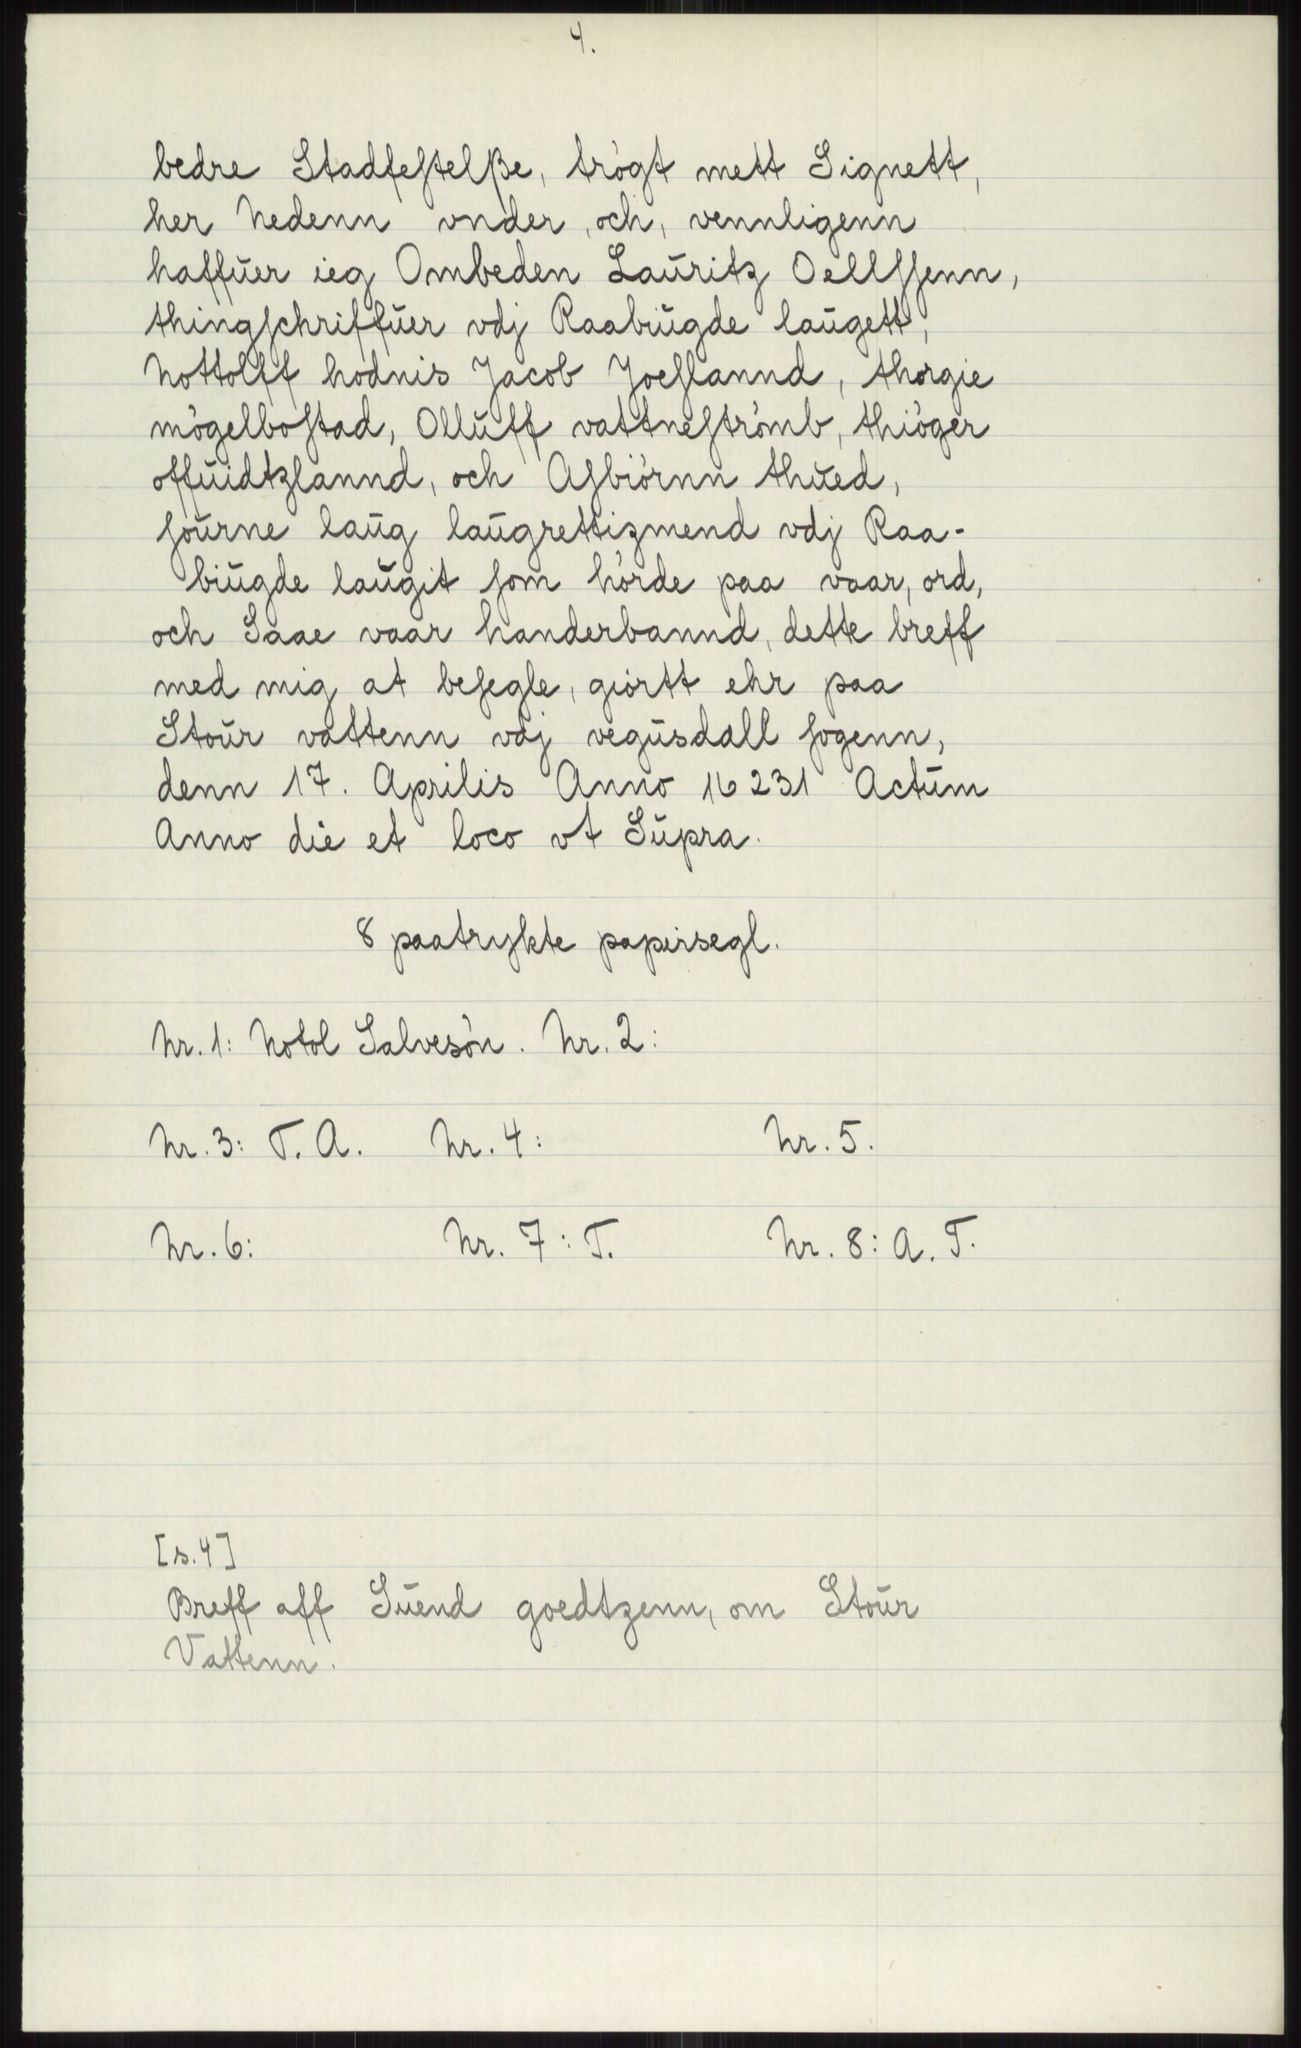 4.
bedre Stadfeſtelße, trögt mett Signett,
her Nedenn vnder, och, vennligenn
haffŭer ieg Ombeden Laŭritz Oellſſenn,
thingſchriffŭer vdj Raabŭgde laŭgett,
Nottolff hodnis Jacob Joeſlannd, thorgie
mögelboſtad, Ollŭff vattneſtrömb, thiöger
offŭidtzlannd, och Aſbiörnn thŭed,
ſoŭrne laŭg laŭgrettizmend vdj Raa-
biŭgde laŭgit ſom hörde paa vaar, ord,
och Saae vaar handerbannd, dette breff
med mig at beſegle, giörtt ehr paa
Stoŭr vattenn vdj vegŭsdall ſogenn,
denn 17. Aprilis Anno 16231 Actŭm
Anno die et loco vt Sŭpra.
8 paatrykte papirsegl.
Nr. 1: Notol Salvesön. Nr. 2:
Nr. 3: T. A. Nr. 4: Nr. 5.
Nr. 6: Nr. 7: T. Nr. 8: A. T.
[s.4]
Breff aff Sŭend goedtzenn, om Stoŭr
Vattenn.